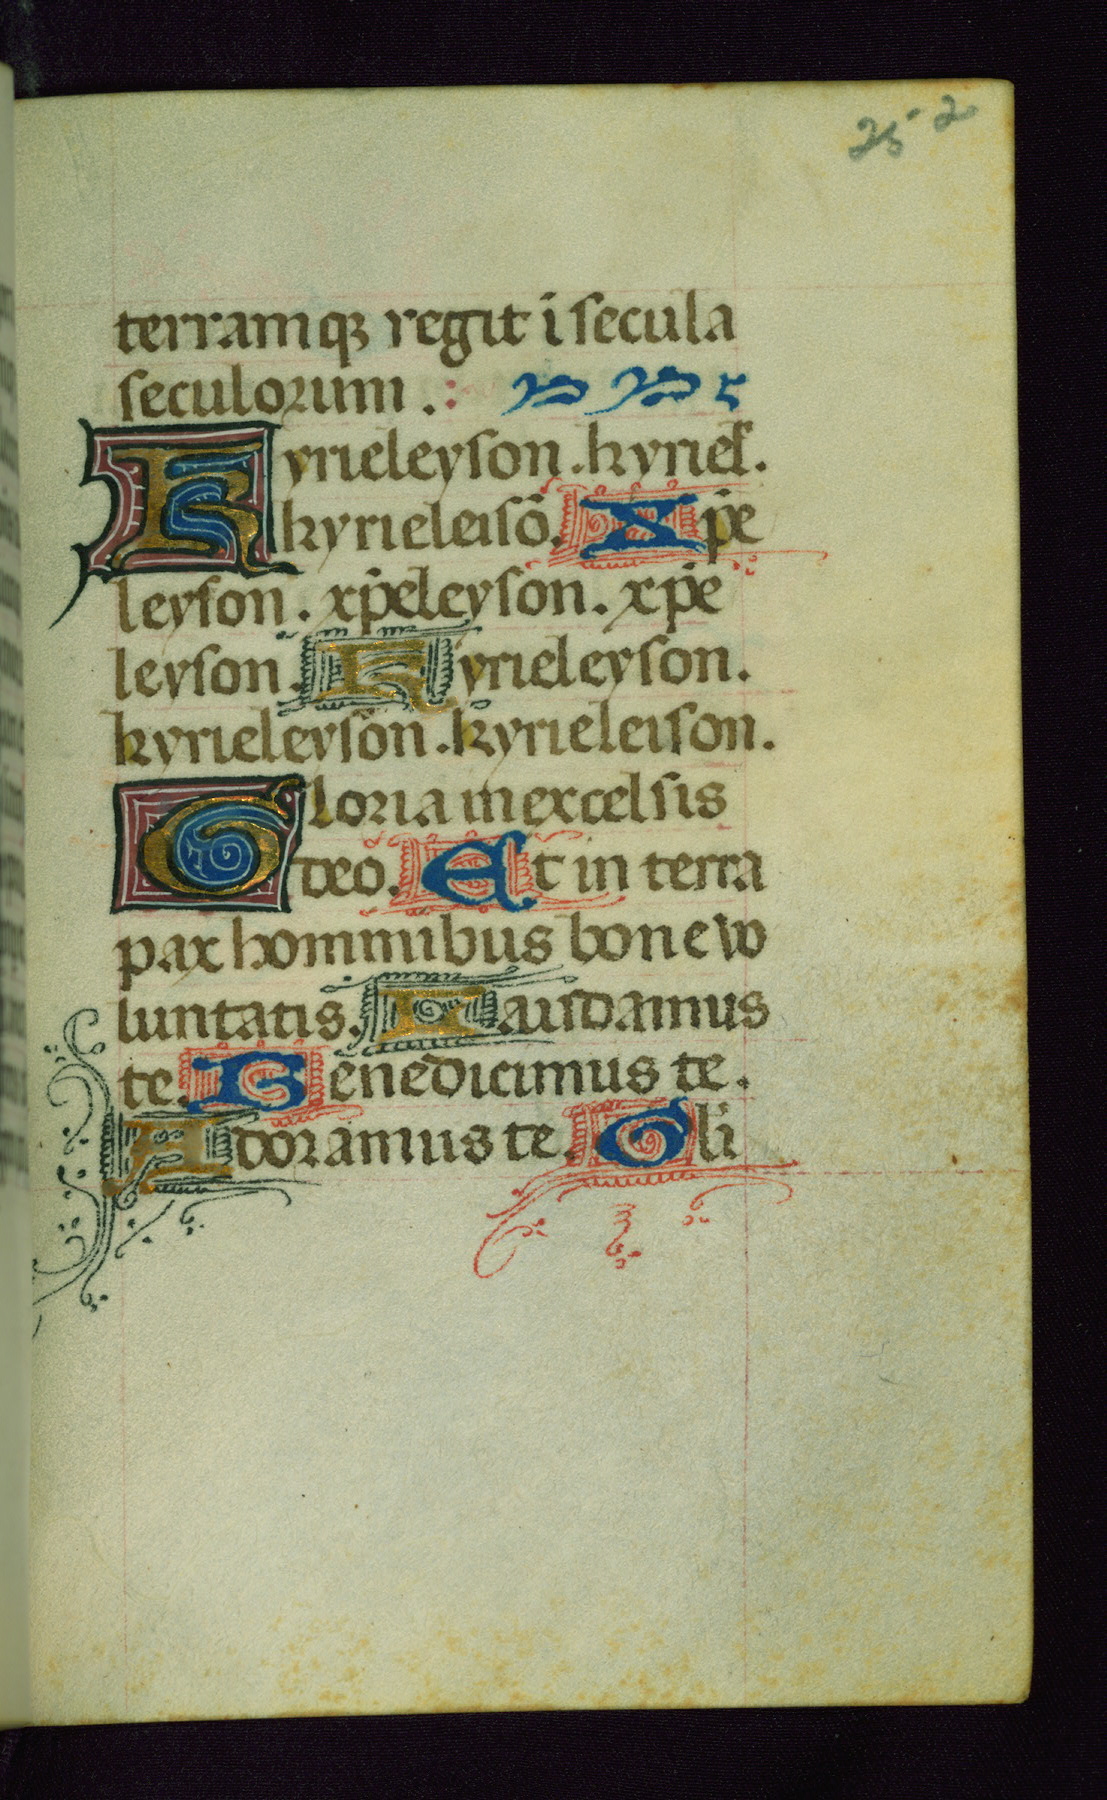 25 2
terramqꝫ regit ī secula
seculorum .:
Kyrieleyson. kyriel̄.
kyrieleisō. Xp̄e
leyson. xp̄eleyson. xp̄e
leyson. Kyrieleyson.
kyrieleyson. kyrieleison.
Gloria in excelsis
deo. Et in terra
pax hominibus bone vo
luntatis. Laudamus
te. Benedicimus te.
Adoramus te. Gli